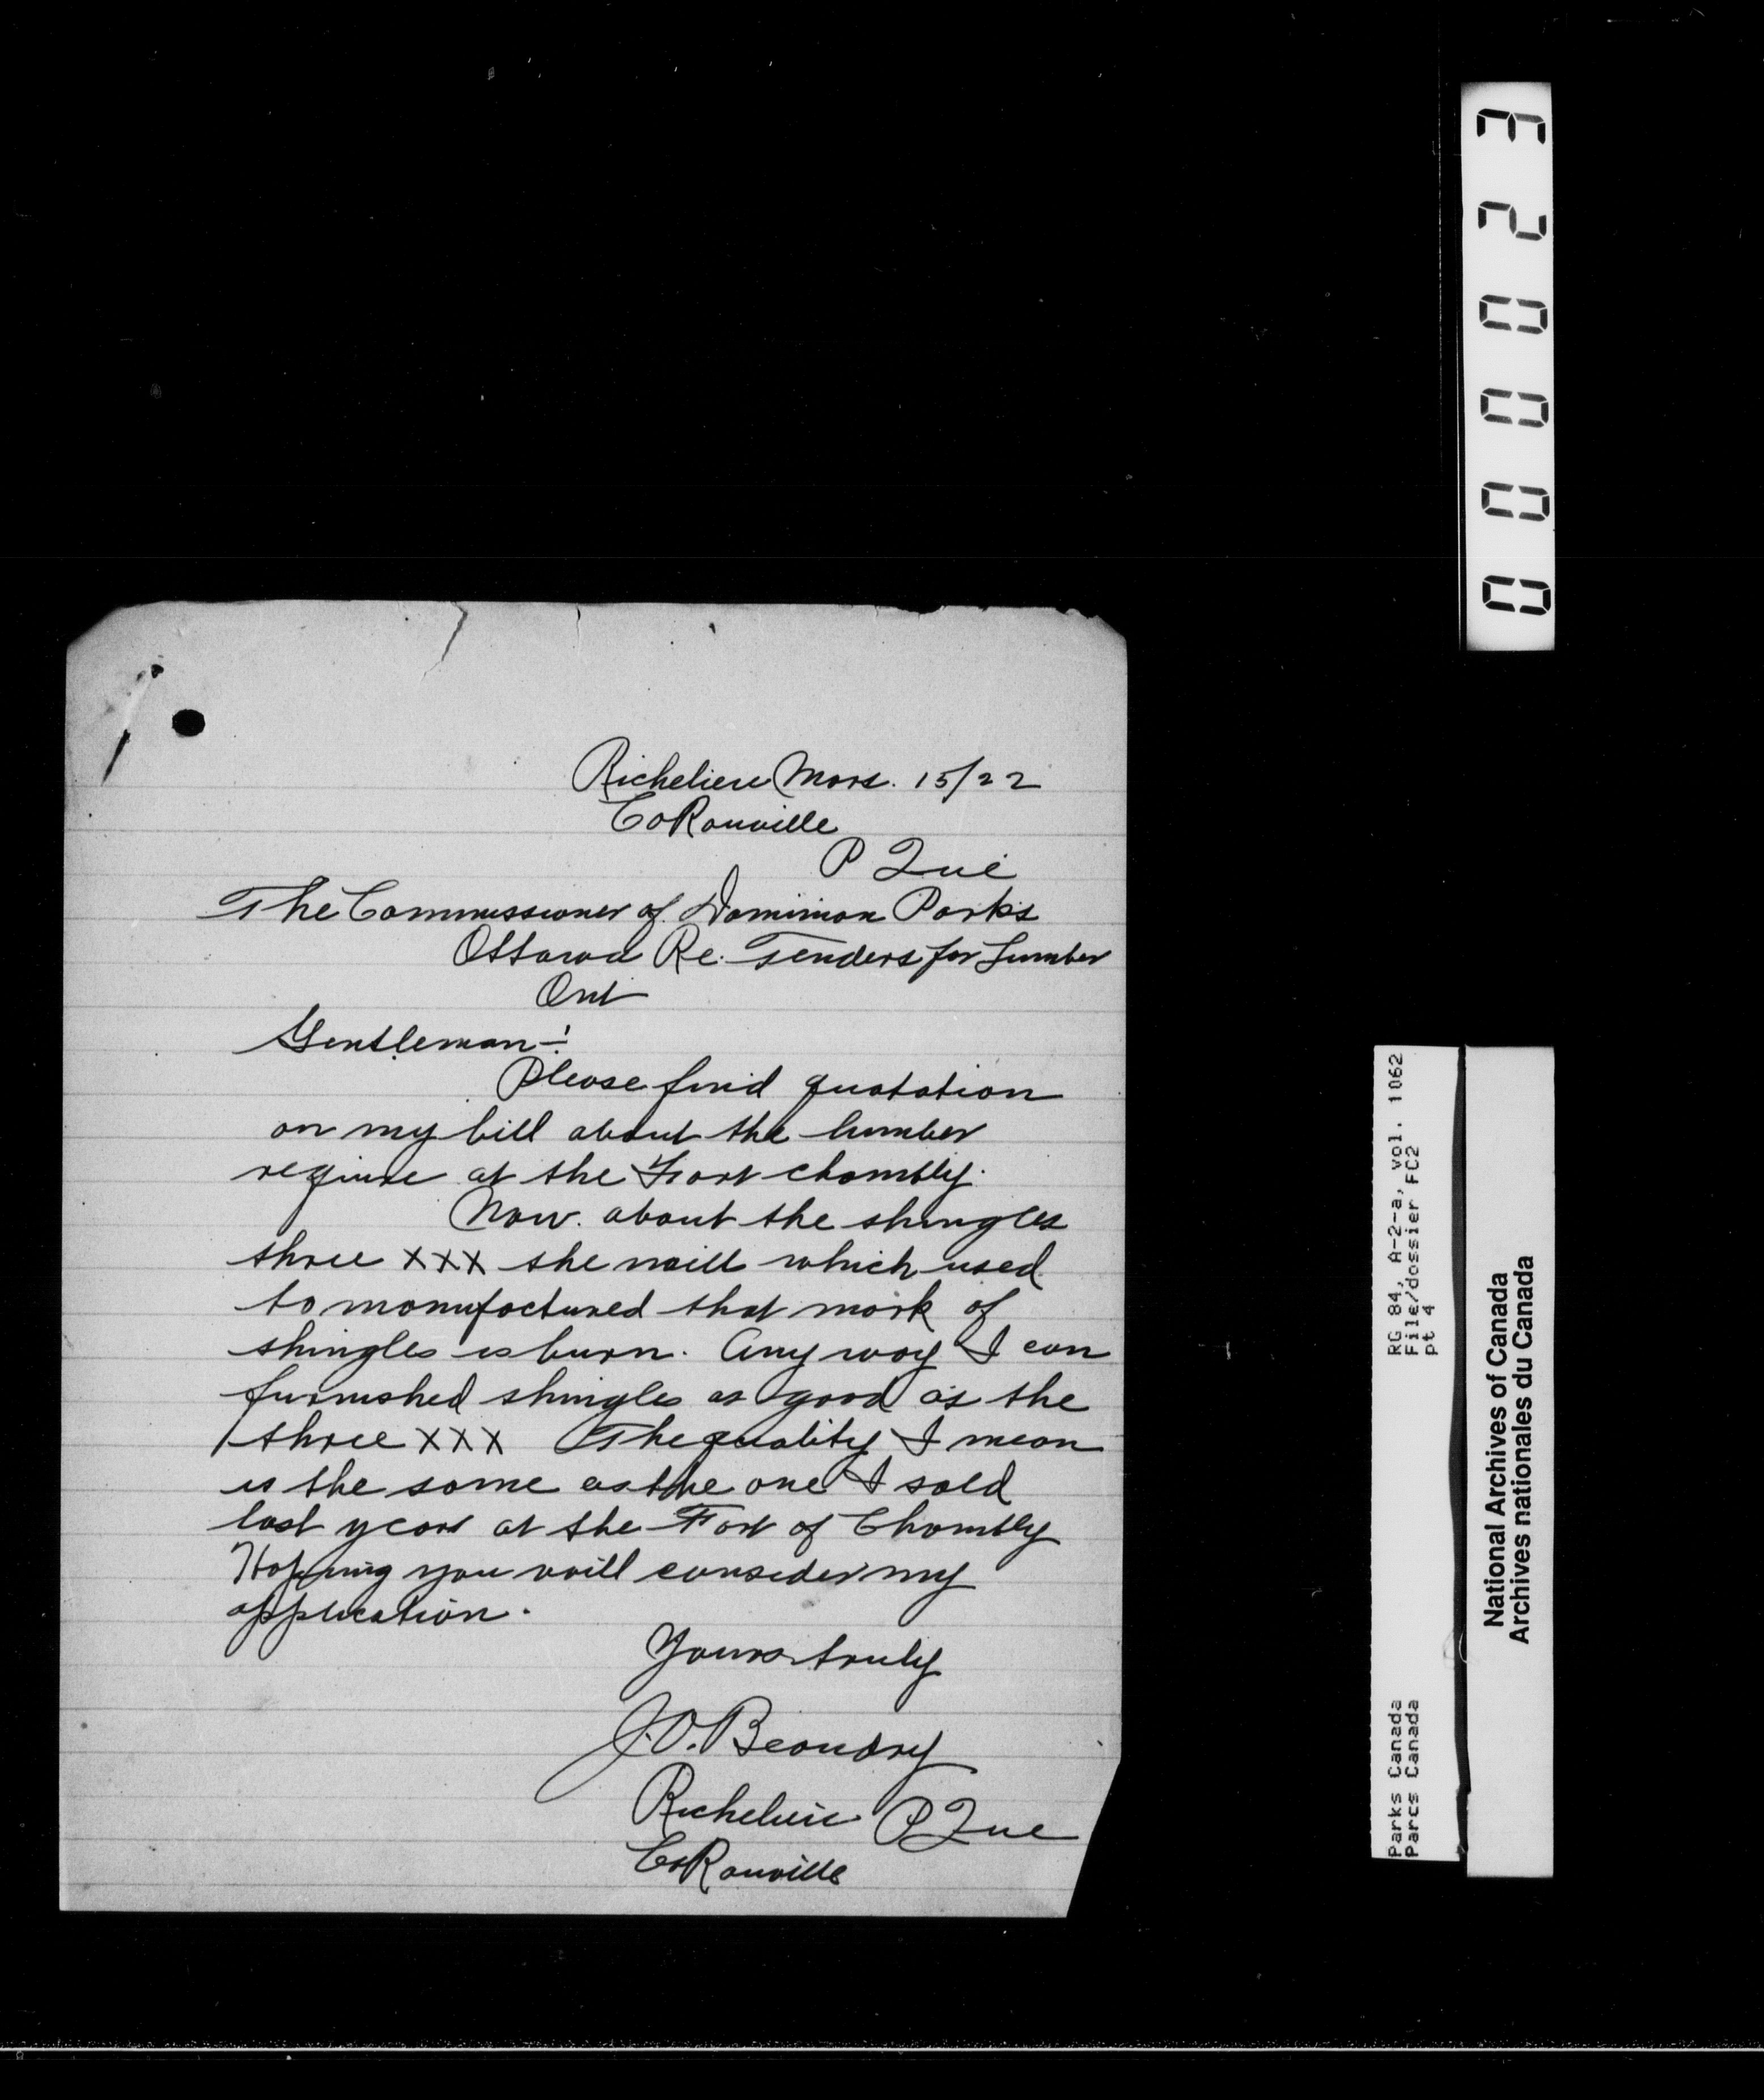 Richelieu Mars. 15/22
Co Rouville
P Qué
The Commissioner of Dominion Parks
Ottawa Re. Tenders for Lumber
Ont
Gentleman -!
Please find quotation
on my bill about the lumber
require at the Fort Chambly.
Now. about the shingles
three XXX the mill which used
to manufactured that mark of
shingles is burn. Any way I can
furnished shingles as good as the
three XXX The quality I mean
is the same as the one I sold
last year at the Fort of Chambly
Hopping you will consider my
application.
Yours truly
J.O. Beaudry
Richelieu P Que
Co Rouville
000023
RG 84, A-2-a, vol. 1062
File/dossier FC2
pt 4
Parks Canada
Parcs Canada
National Archives of Canada
Archives nationales du Canada